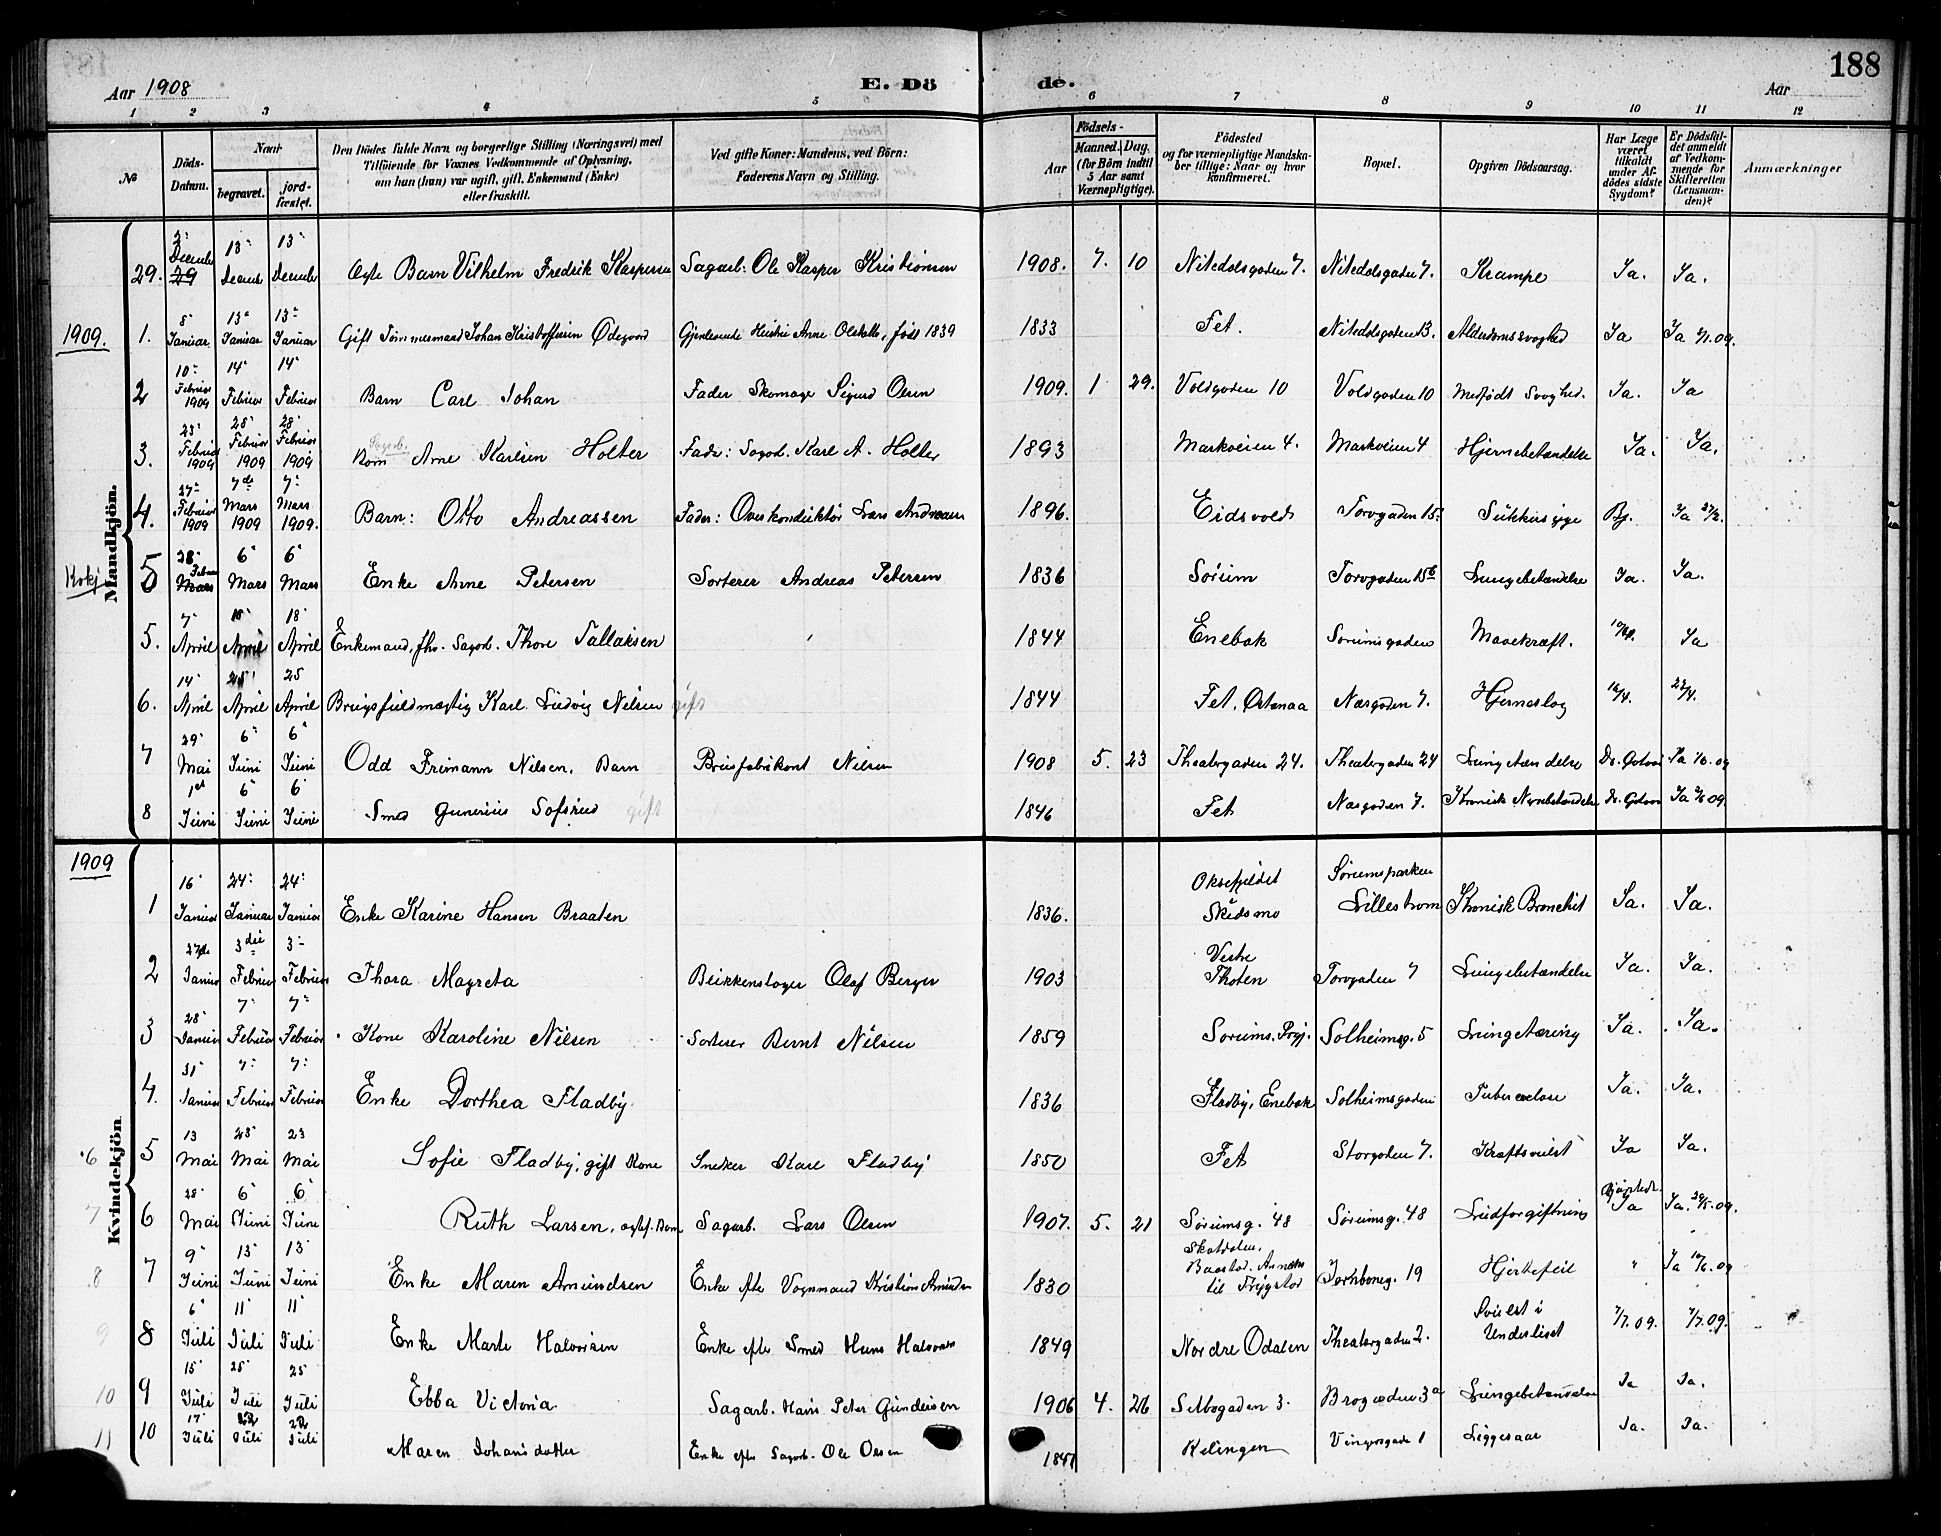 188
Aar 1908 E. Dö de. Aar
1 2 3 4 5 6 7 8 9 10 11 12
№ Döds-Datum. Naar begravet. jordfæstet. Den Dödes fulde Navn og borgerlige Stilling (Næringsvei) med Tilföiende for Voxnes Vedkommende af Oplysning, om han (hun) var ugift, gift, Enkemand (Enke) eller fraskilt. Ved gifte Koner: Mandens, ved Börn: Faderens Navn og Stilling. Födsels- Aar Maaned. Dag. (for Börn indtil 5 Aar samt Værnepligtige). Födested og for værnepligtige Mandskaber tillige: Naar og hvor konfirmeret. Bopæl. Opgiven Dödsaarsag. Har Læge været tilkaldt under Afdödes sidste Sygdom? Er Dödsfaldet anmeldt af Vedkommende for Skifteretten (Lensmanden)? Anmærkninger
Mandkjön.
29. 3' December 29 13' Decemb 13' December Ægte Barn Vilhelm Fredrik Kaspersen Sagarb: Ole Kasper Kristiansen 1908. 7. 10 Nitedalsgaden 7. Nitedalsgaden 7. Krampe Ja. Ja.
1909. 1. 8' Januar 13' Januar 13' Januar Gift Tømmermand Johan Kristoffersen Ødegaard Gjenlevende Hustru Anne Olsdatter, født 1839 1833 Fet. Nitedalsgaden 13. Alderdomssvaghed Ja Ja 9/1.09.
2 10' Februar 1909 14' Februar 14' Februar Barn Carl Johan Fader Skomager Sigurd Olsen 1909. 1 29. Voldgaden 10 Voldgaden 10 Medfødt Svaghed. Ja. Ja
3. 23' Februar 1909 28' Februar 1909 28' Februar 1909 Barn Sagarb. Arne Karlsen Holter Fader: Sagarb. Karl A. Holter 1893 Markveien 4. Markveien 4 Hjernebetændelse Ja. Ja.
4. 27' Februar 1909 7de Mars 1909 7' Mars 1909. Barn: Otto Andreassen Fader: Overkonduktør Lars Andreasen 1896. Eidsvold Torvgaden 15 Sukkersyge Bj. Ja 27/2.
5 28' Februar Mars 6' Mars 6' Mars Enke Anne Petersen Sorterer Andreas Petersen 1836 Sørum Torvgaden 15b Lungebetændelse Ja. Ja.
5. 7' April 18' April 18' April Enkemand, fhv. Sagarb. Thore Tallaksen 1844 Enebak Sørumsgaden Mavekræft. Ja
6. 14' April 25' April 25 April Brugsfuldmægtig Karl Ludvig Nilsen gift 1844 Fet, Østenaa Næsgaden 7. Hjerneslag
7 29' Mai 6' Juni 6' Juni Odd Frimann Nilsen. Barn Brusfabrikant Nilsen 1908 5. 23 Theatergaden 24. Theatergaden 24 Lungetændelse Ja 1/6.09
8 1st Juni 6' Juni 6' Juni Smed Gunerius Sofsrud gift 1846 Fet Næsgaden 7. Kronisk Nyrebetændelse Ja 09
Kvindekjön
1909
1 16' Januar 24' Januar 24' Januar Enke Karine Hansen Braaten 1836. Oksefjeldet Skedsmo Sørumsparken Lillestrøm Kronisk Bronchit Ja. Ja.
2 27de Januar 3die Februar 3' Februar Thora Magreta Blikkenslager Olaf Berger 1903 Vestre Thoten Torvgaden 7 Lungebetændelse Ja. Ja.
3 28' Januar 7' Februar 7' Februar Kone Karoline Nilsen Sorterer Bernt Nilsen 1859 Sørums. Præj. Solheimsg. 5 Lungetæring Ja. Ja.
4. 31' Januar 7' Februar 7' Februar Enke Dorthea Fladby 1836 Fladby, Enebak Solheimsgaden Tuberculose Ja. Ja.
6 5 13 Mai 23' Mai 23 Mai Sofie Fladby, gift Kone Snekker Karl Fladby 1850 Fet Storgaden 7. Kræftsvulst Ja Ja.
7 6 28' Mai 6' Juni 6' Juni Ruth Larsen, ægtef. Barn Sagarb. Lars Olsen 1907. 5. 21 Sørumsg. 48 Sørumsg. 48 Ludforgiftning Ja Ja. 29/5.09.
8 7 9' Juni 13' Juni 13' Juni Enke Maren Amundsen Enke efter Vognmand Kristian Amundsen 1830 Skotdalen, Baastad. Annexs til Trygstad Jernbaneg. 19 Hjertefeil " Ja 10/6.09
9 8 6' Juli 11' Juli 11' Juli Enke Marte Halvorsen Enke efter Smed Hans Halvorsen 1849 Nordre Odalen Theatergaden 2. Svulst i Underlivet 7/7.09. 7/7.09.
10 9 15' Juli 25' Juli 25' Juli Ebba Victoria Sagarb. Hans Peter Gundersen 1906 4. 26 Selbogaden 3. Brogaden 3a Lungebetændelse Ja Ja.
11 10 17' Juli 22 Juli 22 Juli Maren Johansdatter Enke efter Sagarb. Ole Olsen 1841 Kelingen Vingersgade 1 Liggesaar Ja. Ja.